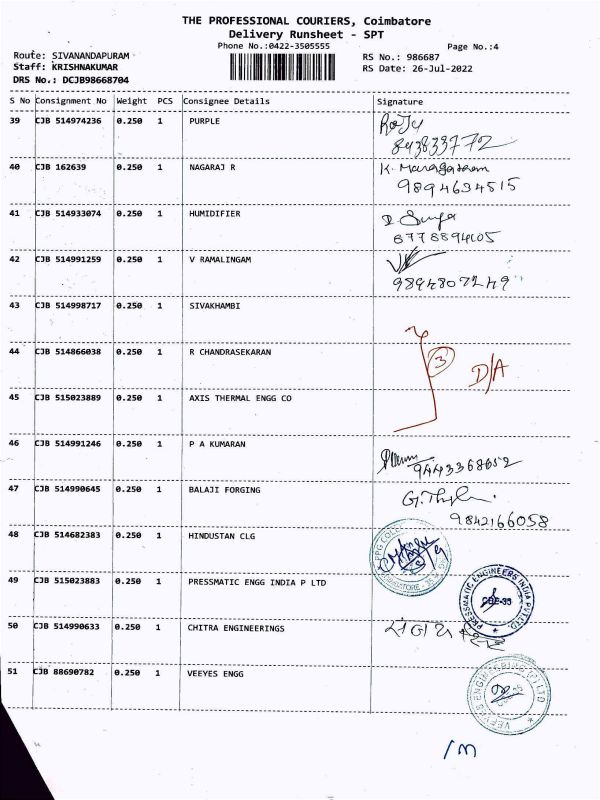 THE PROFESSIONAL COURIERS, Coimbatore
Delivery Runsheet - SPT
Phone No.:0422-3505555
Page No.:4
Route: SIVANANDAPURAM
Staff: KRISHNAKUMAR
DRS No.: DCJB98668704
RS No.: 986687
RS Date: 26-Jul-2022
S No Consignment No Weight PCS Consignee Details Signature
39 CJB 514974236 0.250 1 PURPLE
40 CJB 162639 0.250 1 NAGARAJ R
9894634515
41 CJB 514933074 0.250 1 HUMIDIFIER
42 CJB 514991259 0.250 1 V RAMALINGAM
9894807249
43 CJB 514998717 0.250 1 SIVAKHAMBI
3
D/A
44 CJB 514866038 0.250 1 R CHANDRASEKARAN
45 CJB 515023889 0.250 1 AXIS THERMAL ENGG CO
46 CJB 514991246 0.250 1 P A KUMARAN
9443368652
47 CJB 514990645 0.250 1 BALAJI FORGING
9842166058
48 CJB 514682383 0.250 1 HINDUSTAN CLG
49 CJB 515023883 0.250 1 PRESSMATIC ENGG INDIA P LTD
PRESSMATIC ENGINEERS INDIA PVT LTD
CBE-35
50 CJB 514990633 0.250 1 CHITRA ENGINEERINGS
51 CJB 88690782 0.250 1 VEEYES ENGG
VEEYES ENGINEERING (P) LTD